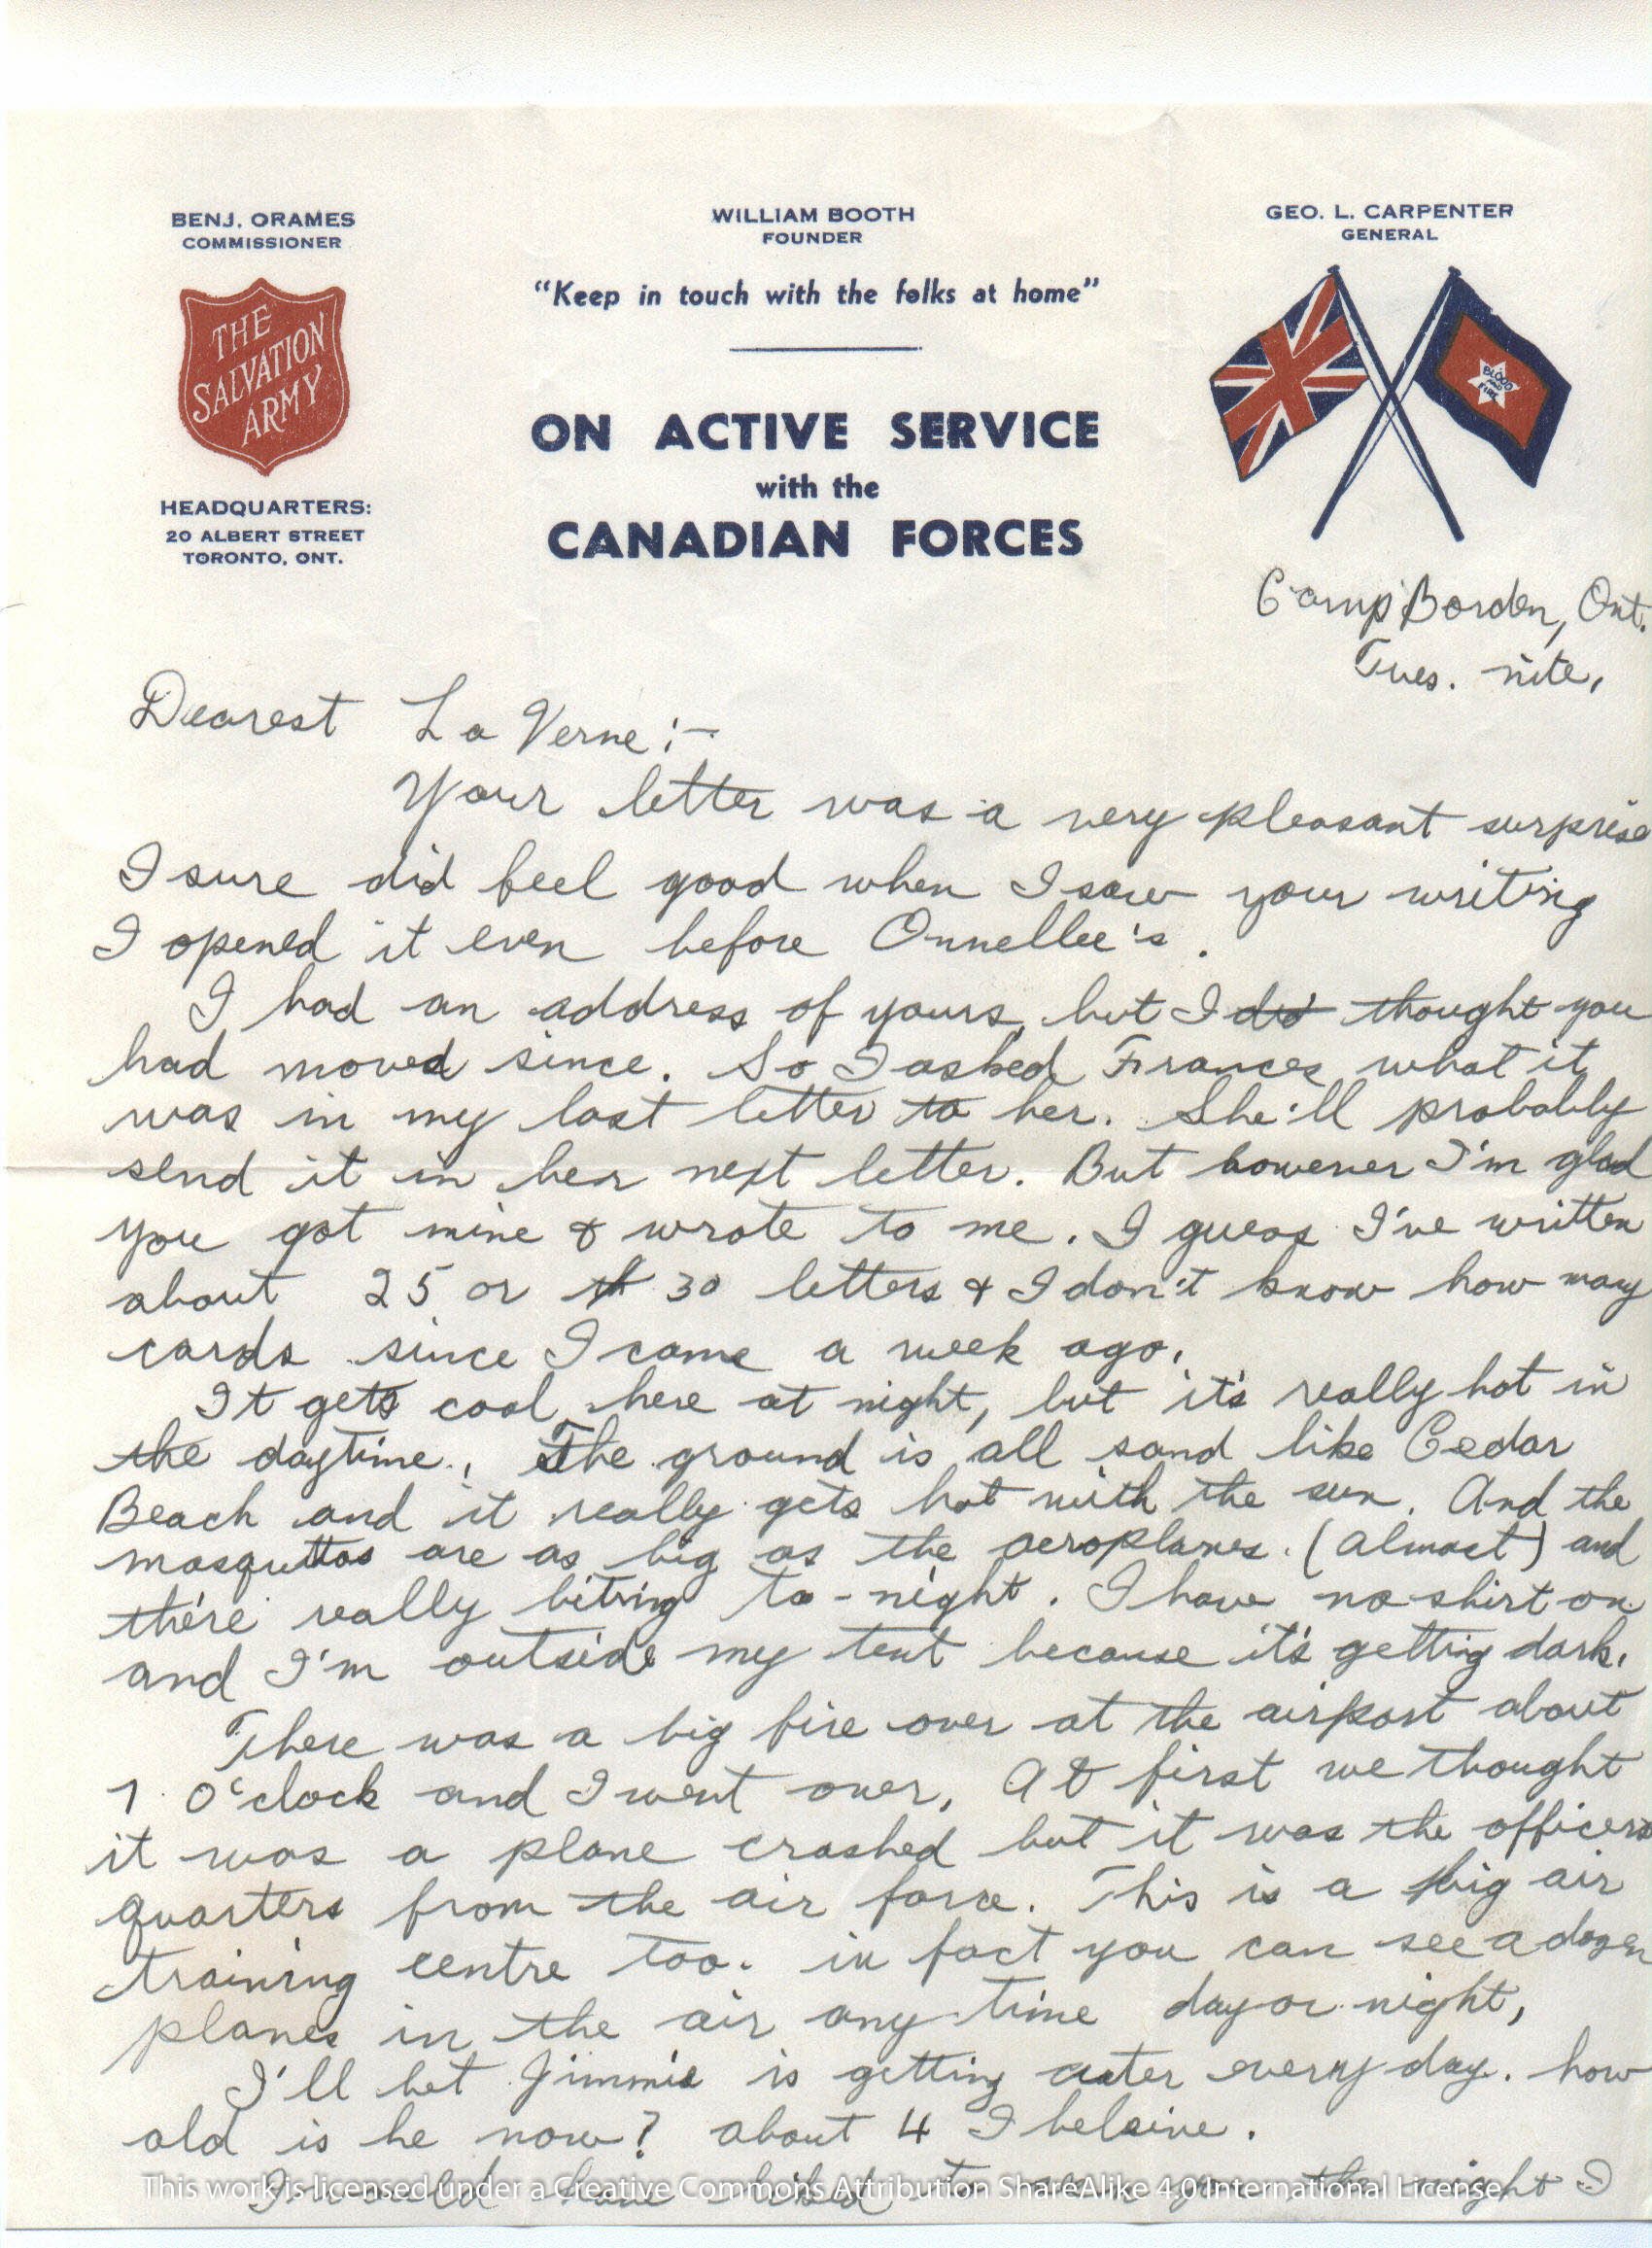 BENJ. ORAMES
COMMISSIONER
THE
SALVATION
ARMY
HEADQUARTERS:
20 ALBERT STREET
TORONTO, ONT.
WILLIAM BOOTH
FOUNDER
"Keep in touch with the folks at home"
ON ACTIVE SERVICE
with the
CANADIAN FORCES
GEO. L. CARPENTER
GENERAL
BLOOD
AND
FIRE
Camp Borden, Ont.
Tues. nite,
Dearest La Verne:-
Your letter was a very pleasant surprise
I sure did feel good when I saw your writing
I opened it even before Onnellee's.
I had an address of yours, but I did thought you
had moved since. So I asked Frances what it
was in my last letter to her. She'll probably
send it in her next letter. But however I'm glad
you got mine & wrote to me. I guess I've written
about 25 or 30 letters & I don't know how many
cards since I came a week ago.
It gets cool here at night, but it's really hot in
the daytime. The ground is all sand like Cedar
Beach and it really gets hot with the sun. And the
mosquittos are as big as the aeroplanes. (almost) and
there really biting to-night. I have no shirt on
and I'm outside my tent because it's getting dark.
There was a big fire over at the airport about
7 o'clock and I went over. At first we thought
it was a plane crashed but it was the officers
quarters from the air force. This is a big air
training centre too. in fact you can see a dozen
planes in the air any time day or night,
I'll bet Jimmie is getting cuter every day. how
old is he now? about 4 I beleive.
I would have liked to seen you the night I
This work is licensed under a Creative Commons Attribution ShareAlike 4.0 International License.